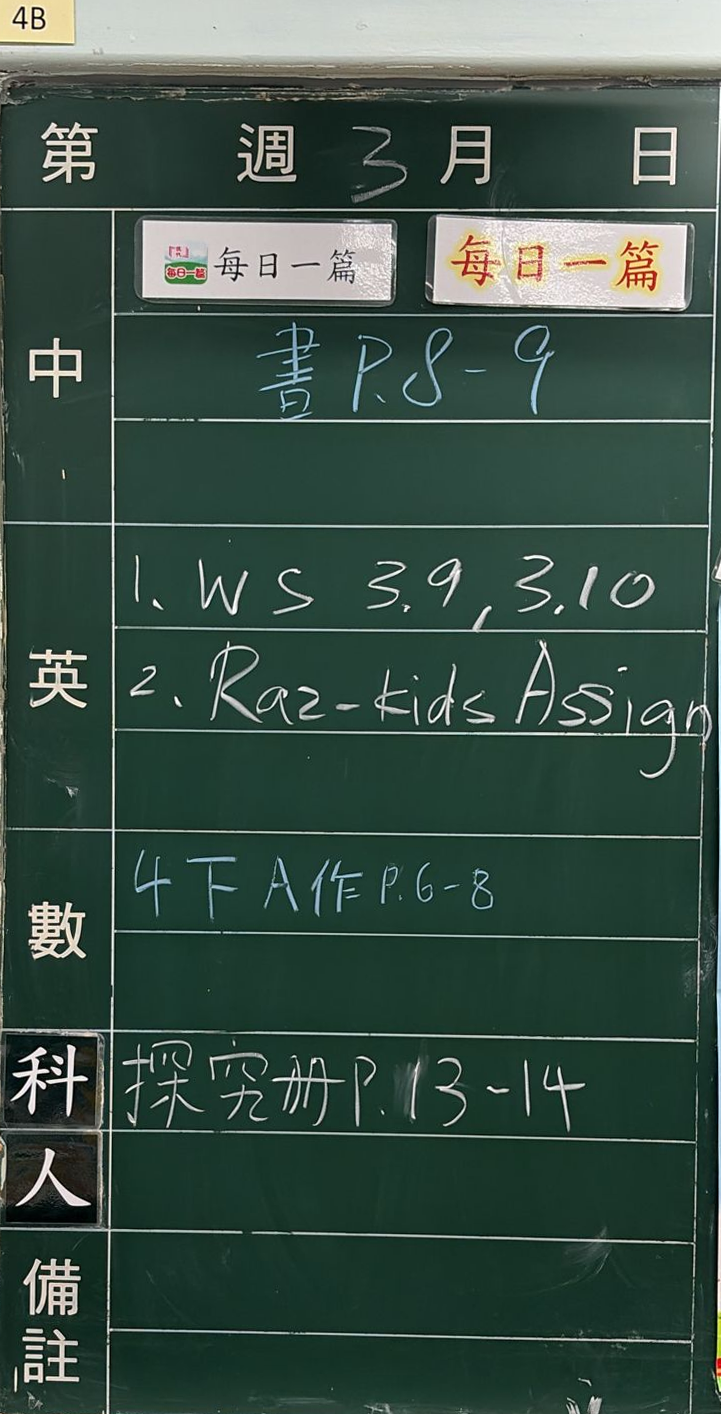 4B
第 週 3 月 日
每日一篇 每日一篇 每日一篇
中
書 P.8-9
英
1. WS 3.9, 3.10
2. Raz-kids Assign
數
4下A作 P.6-8
科 探究册 P.13-14
人
備註